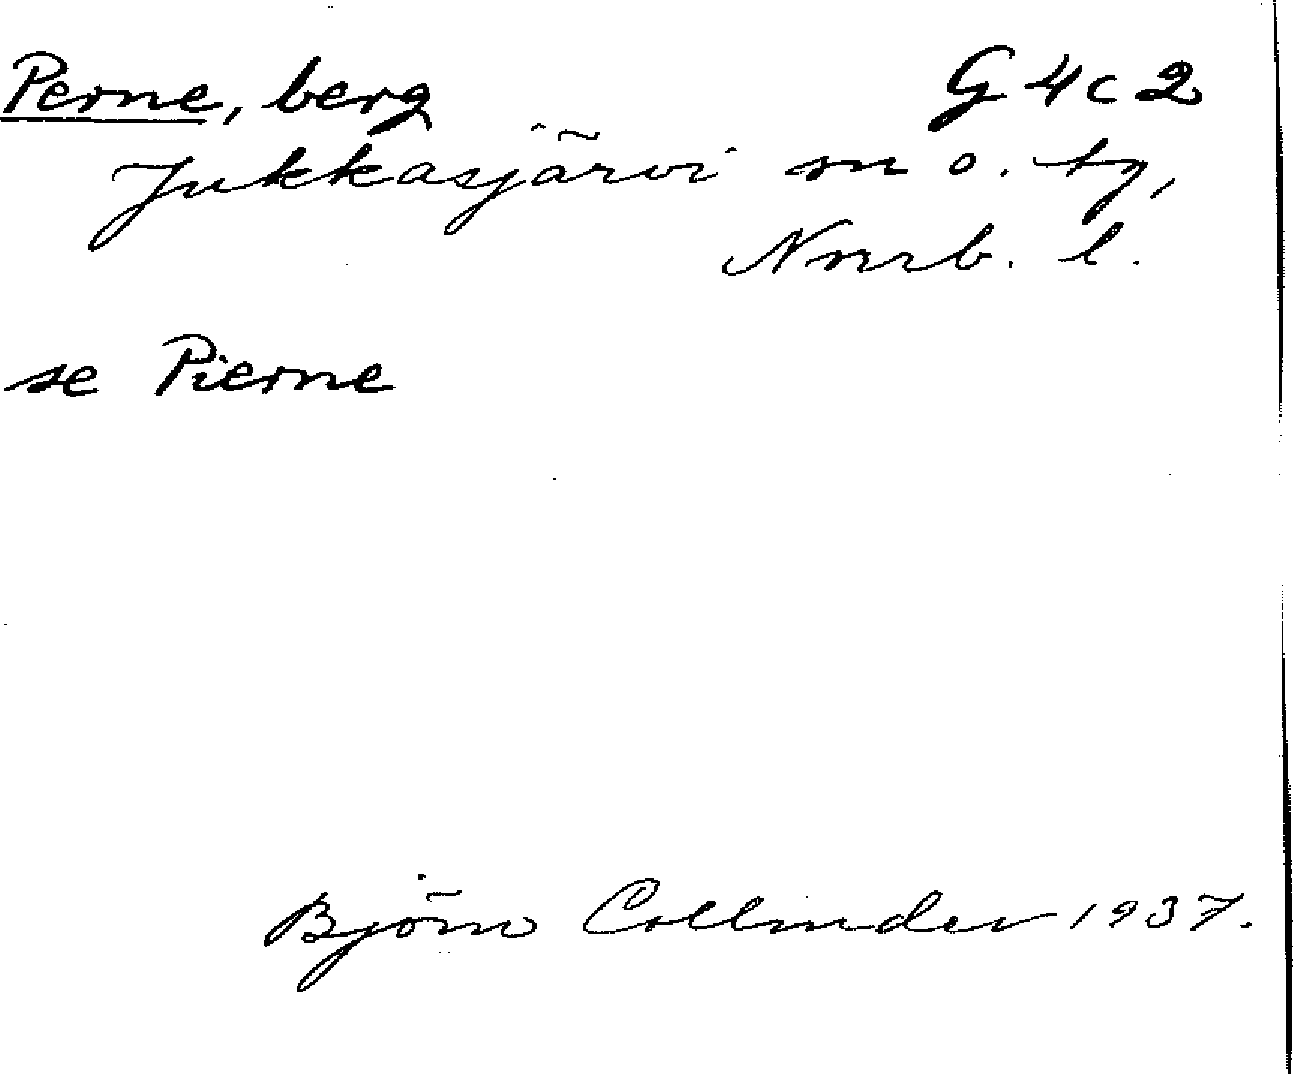 Perne, berg G 4 c 2
Jukkasjärvi sn o. tg,
Norrb. l.
se Pierne
Björn Collinder 1937.